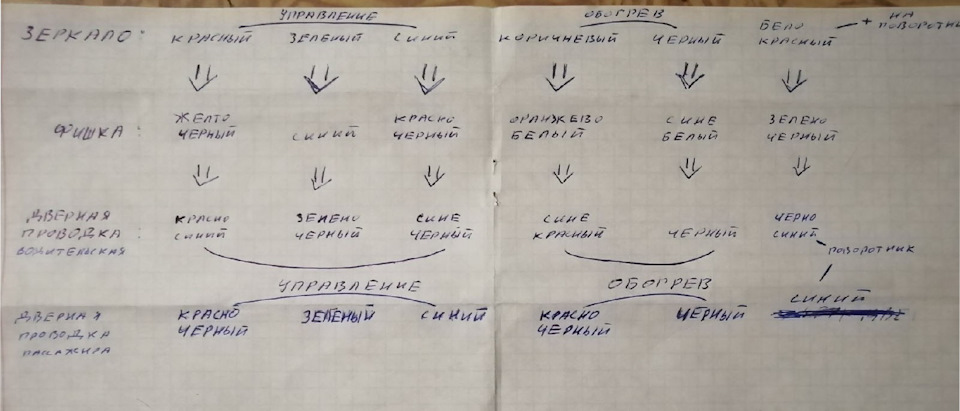 УПРАВЛЕНИЕ ОБОГРЕВ
ЗЕРКАЛО: КРАСНЫЙ ЗЕЛЕНЫЙ СИНИЙ КОРИЧНЕВЫЙ ЧЕРНЫЙ БЕЛО КРАСНЫЙ + НА ПОВОРОТНИК
ЖЕЛТО КРАСНО ОРАНЖЕВО СИНЕ ЗЕЛЕНО
ФИШКА: ЧЕРНЫЙ СИНИЙ ЧЕРНЫЙ БЕЛЫЙ БЕЛЫЙ ЧЕРНЫЙ
ДВЕРНАЯ КРАСНО ЗЕЛЕНО СИНЕ СИНЕ ЧЕРНО
ПРОВОДКА СИНИЙ ЧЕРНЫЙ ЧЕРНЫЙ КРАСНЫЙ ЧЕРНЫЙ СИНИЙ
ВОДИТЕЛЬСКАЯ ПОВОРОТНИК
УПРАВЛЕНИЕ ОБОГРЕВ
СИНИЙ
ДВЕРНАЯ КРАСНО ЗЕЛЕНЫЙ СИНИЙ КРАСНО ЧЕРНЫЙ
ПРОВОДКА ЧЕРНЫЙ ЧЕРНЫЙ
ПАССАЖИРА